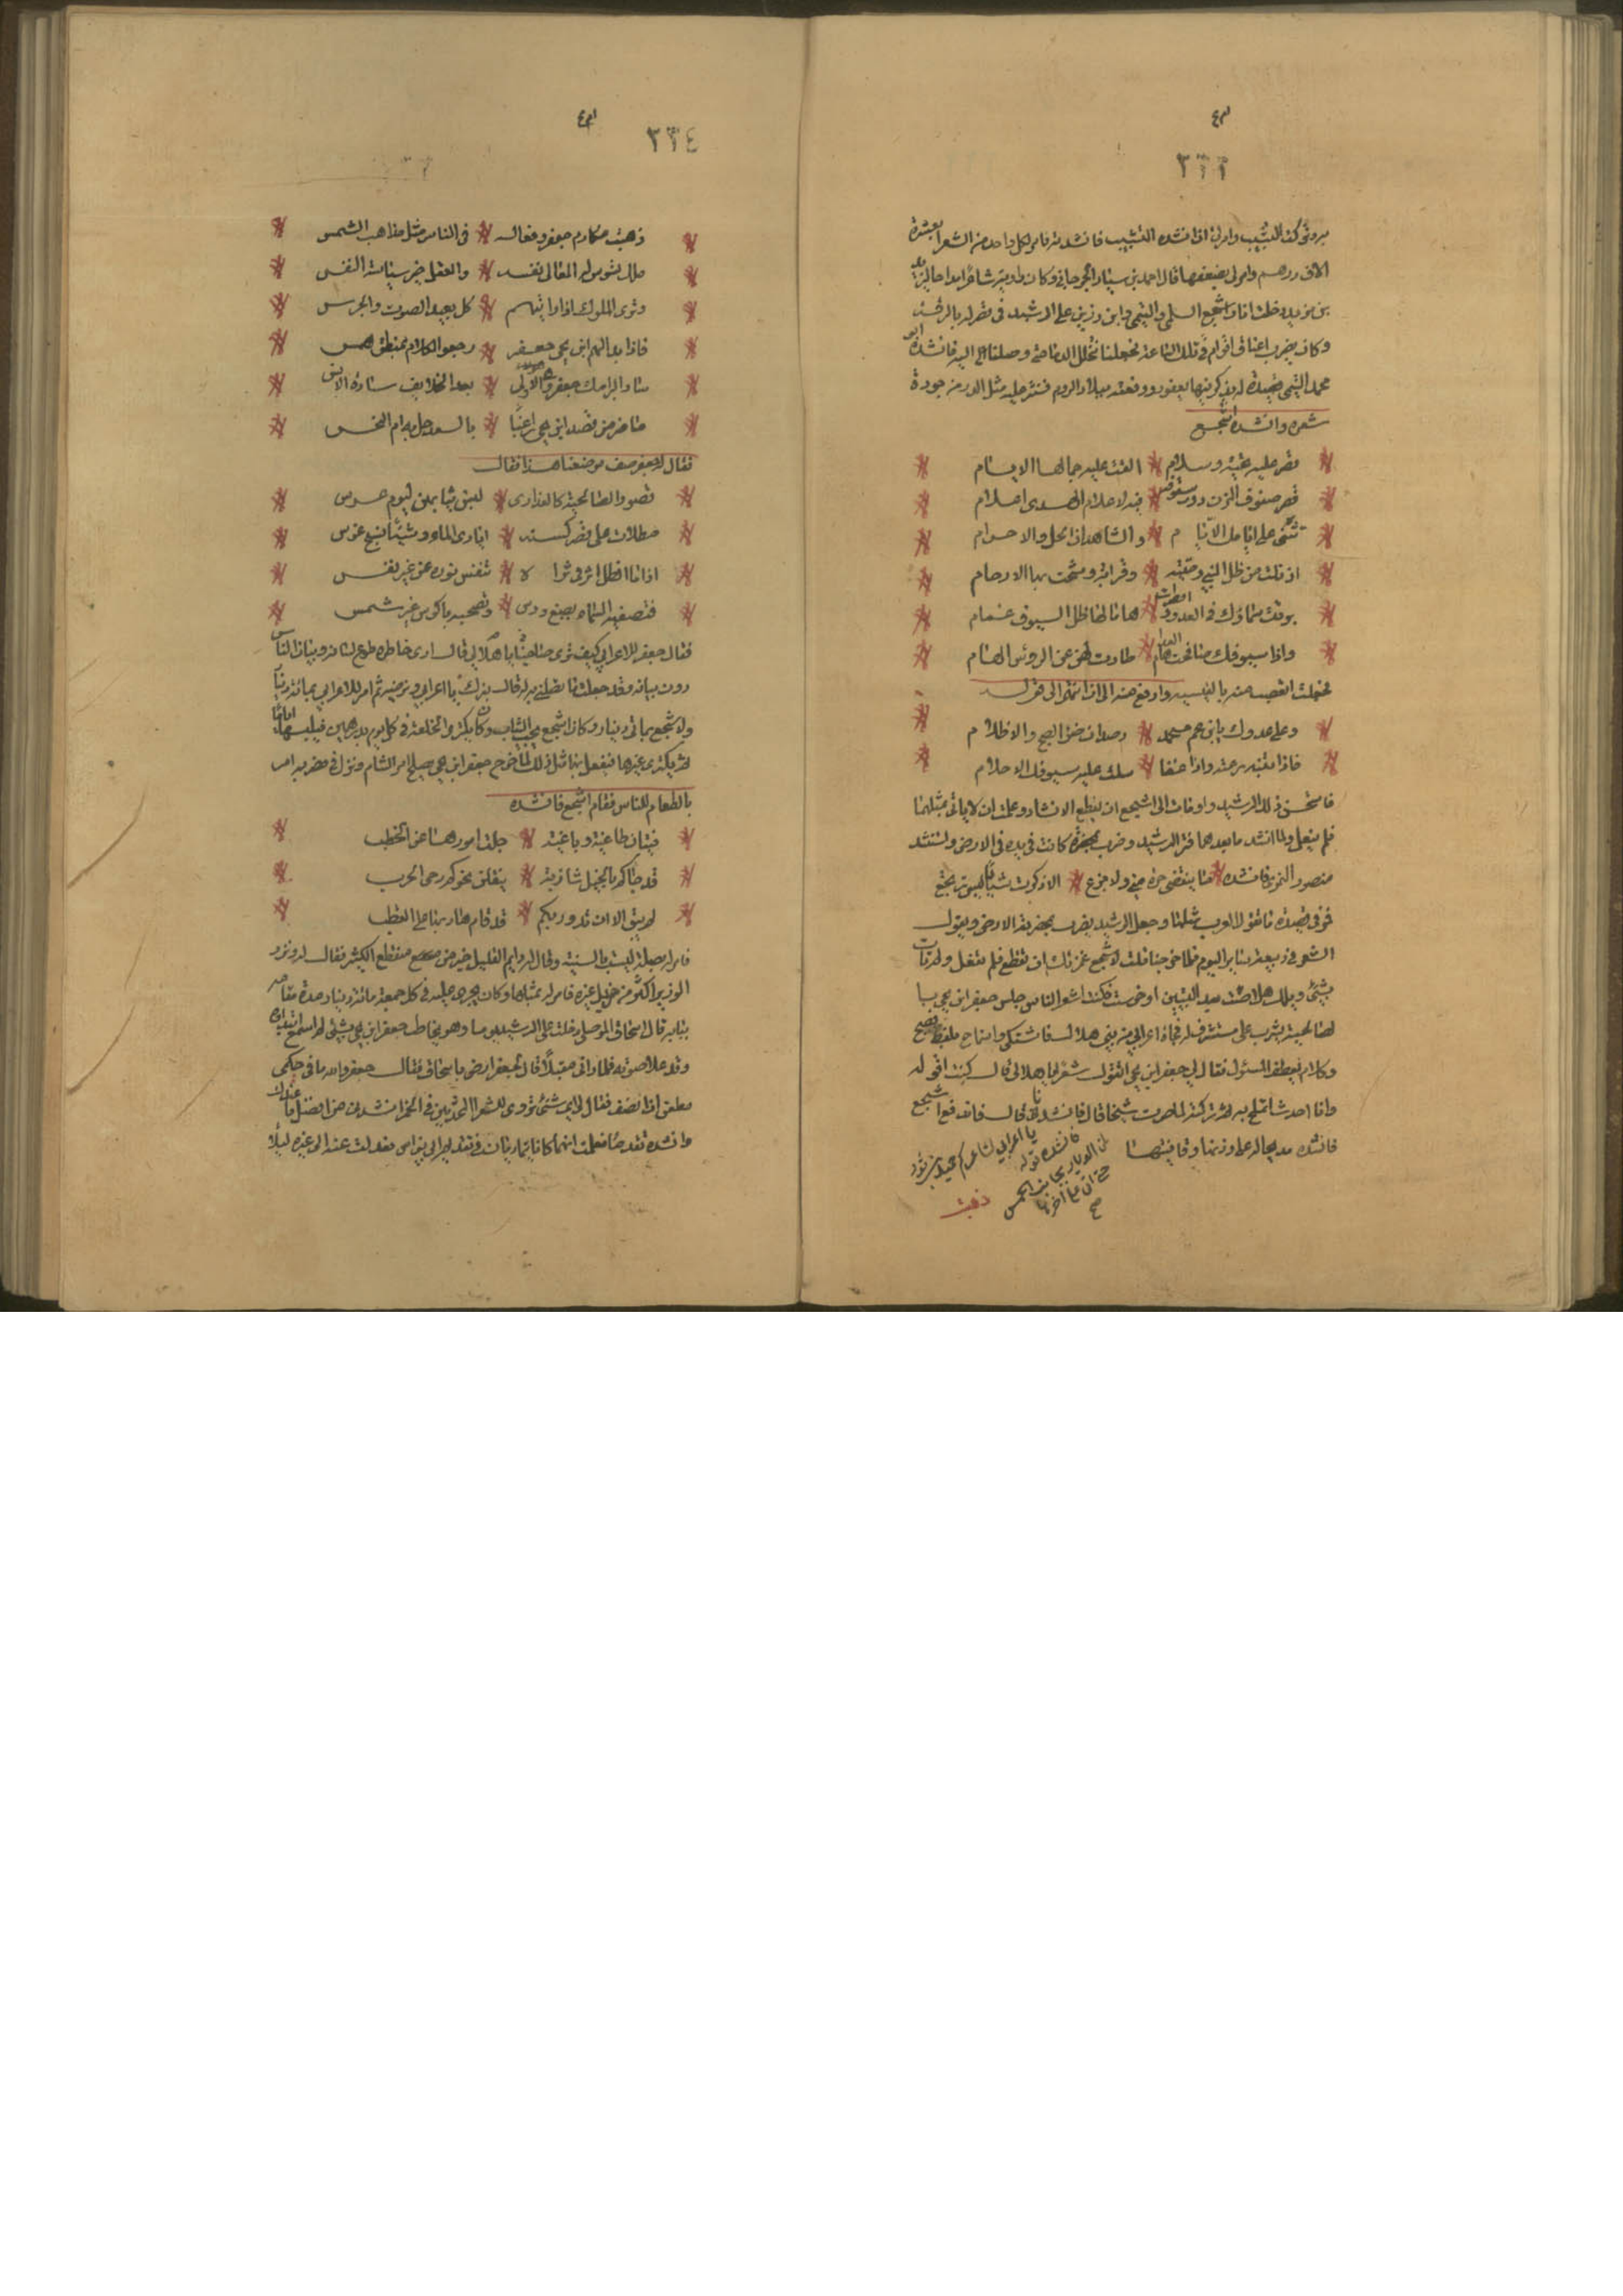 ٣٣٣
بتركت التشبيب وامر لي اذا انشده التشبيب فانشدته فامر لكل واحد من الشعرا بعشرة
الاف درهم وامر لي بضعفها قال احمد بن سيار الجرجاني وكان راوية شاعرا مداحا ليزيد
بن مزيد دخلت انا واشجع السلمي والتيمي وابن رزين على الرشيد في قصر له بالرقة
وكان يضرب اعناق اقوام في تلك الساعة فجعلنا نتخلل الدما حتى وصلنا الى اليه فانشده ابو
محمد التيمي قصيدة له يذكر فيها يعفور ووقعته ببلاد الروم فنثر عليه مثل الدر من جودة
شعره وانشده اشجع
قصر عليه تحية وسلام القت عليه جمالها الايام
قصر سقوف المزن دون سقوفه فيه لاعلام الهدى اعلام
تثنى على ايامك الايام والشاهدان الحل والاحرام
ادنتك من ظل النبي وصية وقرابة وشجت بها الارحام
برقت سماؤك في العدو وامطرت هاما لها ظل السيوف غمام
واذا سيوفك صافحت هام العدا طارت لهن عن الرؤس الهام
وعلى عدوك يا ابن عم محمد رصدان ضوء الصبح والاظلام
فاذا تنبه رعته واذا غفا سلت عليه سيوفك الاحلام
فاستحسن ذلك الرشيد واومات الى اشجع ان يقطع الانشاد وعلمت ان لا ياتي بمثلهما
فلم يفعل ولما انشد ما بعدهما فتر الرشيد وضرب بمخصرة كانت في يده في الارض واستنشد
منصور النمري فانشده ما تنقضي حسرة مني ولا جزع اذا ذكرت شبابا ليس يرتجع
فمر في قصيدة ما تقول العرب مثلها وجعل الرشيد يضرب بمخصرته الارض ويقول
الشعر في ربيعة سائر اليوم فلما خرجنا قلت لاشجع غمزتك ان تقطع فلم تفعل ولم تات
بشي ويلك هلا مت بعد البيتين او خرست فكنت اشعر الناس جلس جعفر ابن يحيى
بالصالحية يشرب على مستشرف له فجاه اعرابي من بني هلال فاشتكى واستماح بلفظ فصيح
وكلام يعطف المسئول فقال له جعفر ابن يحيى اتقول شعرا يا هلالي قال كنت اقوله
وانا احدث اتملح به ثم تركته لما صرت شيخا قال فانشدنا
يا اعرابي لشاعركم حميد بن ثور
فانشده قوله
لمن الديار بجانب الحمس
حتى اتى على اخرها
صح
قال فاندفع اشجع
فانشده مديحا له على وزنها وقافيتها
ذهبت
٣٣٤
ذهبت مكارم جعفر وفعاله في الناس مثل مذاهب الشمس
ملك تسوس له المعالي نفسه والعقل خير سياسة النفس
وترى الملوك اذا رايتهم كل بعيد الصوت والجرس
فاذا بدا لهم ابن يحيى جعفر رجعو الكلام بمنطق همس
ساد البرامك جعفر وهم الاولى بعد الخلايف سادة الانس
ما ضر من قصد ابن يحيى راغبا بالسعد حل به ام النحس
فقال له جعفر صف موضعنا هذا فقال
قصور الصالحية كالعذارى لبسن ثيابهن ليوم عرس
مطلات على قصر كسته ايادي الماء وشيئا نسج غرس
اذا ما الطل اثر في ثراه تنفس نوره عن غير نفس
فتصبغه السماء بصبغ ورس وتصبحه باكوس غير شمس
فقال جعفر للاعرابي كيف ترى صاحبنا يا هلالي قال ارى خاطره طوع لسانه وبيان الناس
دون بيانه وقد جعلت ما تصلني به له قال نزيدك يا اعرابي ونرضيه ثم امر للاعرابي بمائة دينار
ولاشجع بماتي دينار وكان اشجع يحب الثياب وكان يكتري الخلعة في كل يوم بدرهمين فيلبسها اياما
ثم يكتري غيرها فيفعل بها مثل ذلك لما خرج جعفر ابن يحيى ليصلح امر الشام ونزل في مضربه امر
بالطعام للناس فقام اشجع فانشده
فيتان طاغية وباغية جلت امورهما عن الخطب
قد جاكم بالخيل شازبة ينقلن نحوكم رحى الحرب
لم يبق الا ان تدور بكم قد قام هاديها على القطب
فامر له بصلة ليست بالسنية وقال له دايم القليل خير من منقطع الكثير فقال له ونزر
الوزير اكثر من جزيل غيره فامر له بمثلها وكان يجري عليه في كل جمعة مائة دينار مدة مقامه
ببابه قال اسحاق الموصلي دخلت على الرشيد يوما وهو يخاطب جعفر ابن يحيى بشئ لم اسمع ابتداه
وقد علا صوته فلما راني مقبلا قال لجعفر ارضى باسحاق فقال جعفر والله ما في حكمي
مطعن اذا انصف فقال لي اي شئ تروي للشعرا المحدثين في الخمر انشدني من افضل ما عندك
وانشده تقدما فعلمت انهما كانا يتماريان في تقديم ابي نواس فعدلت عنه الى غيره ليلا